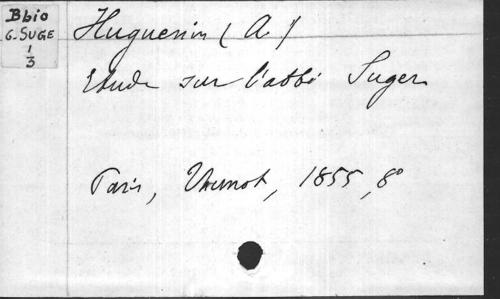 Bbio
G. SUGE
1
3
Huguenin (A)
Etude sur l'abbé Suger
Paris, Thunot, 1855, 8°